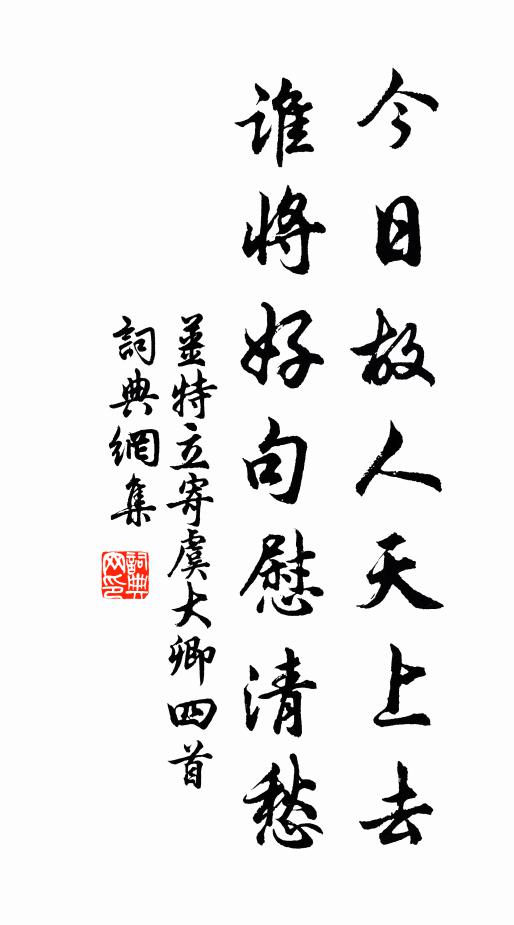 今日故人天上去
誰將好句慰清愁
姜特立寄虞大卿四首
詞典網集
詞典網印